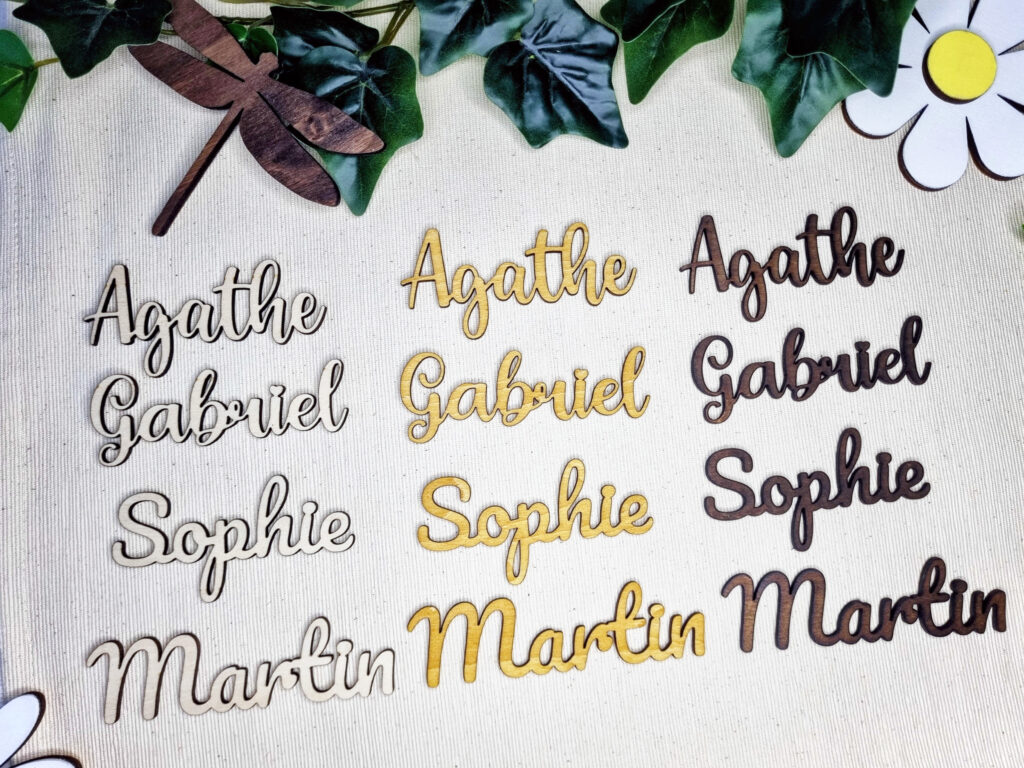 Agathe Agathe Agathe
Gabriel Gabriel Gabriel
Sophie Sophie Sophie
Martin Martin Martin